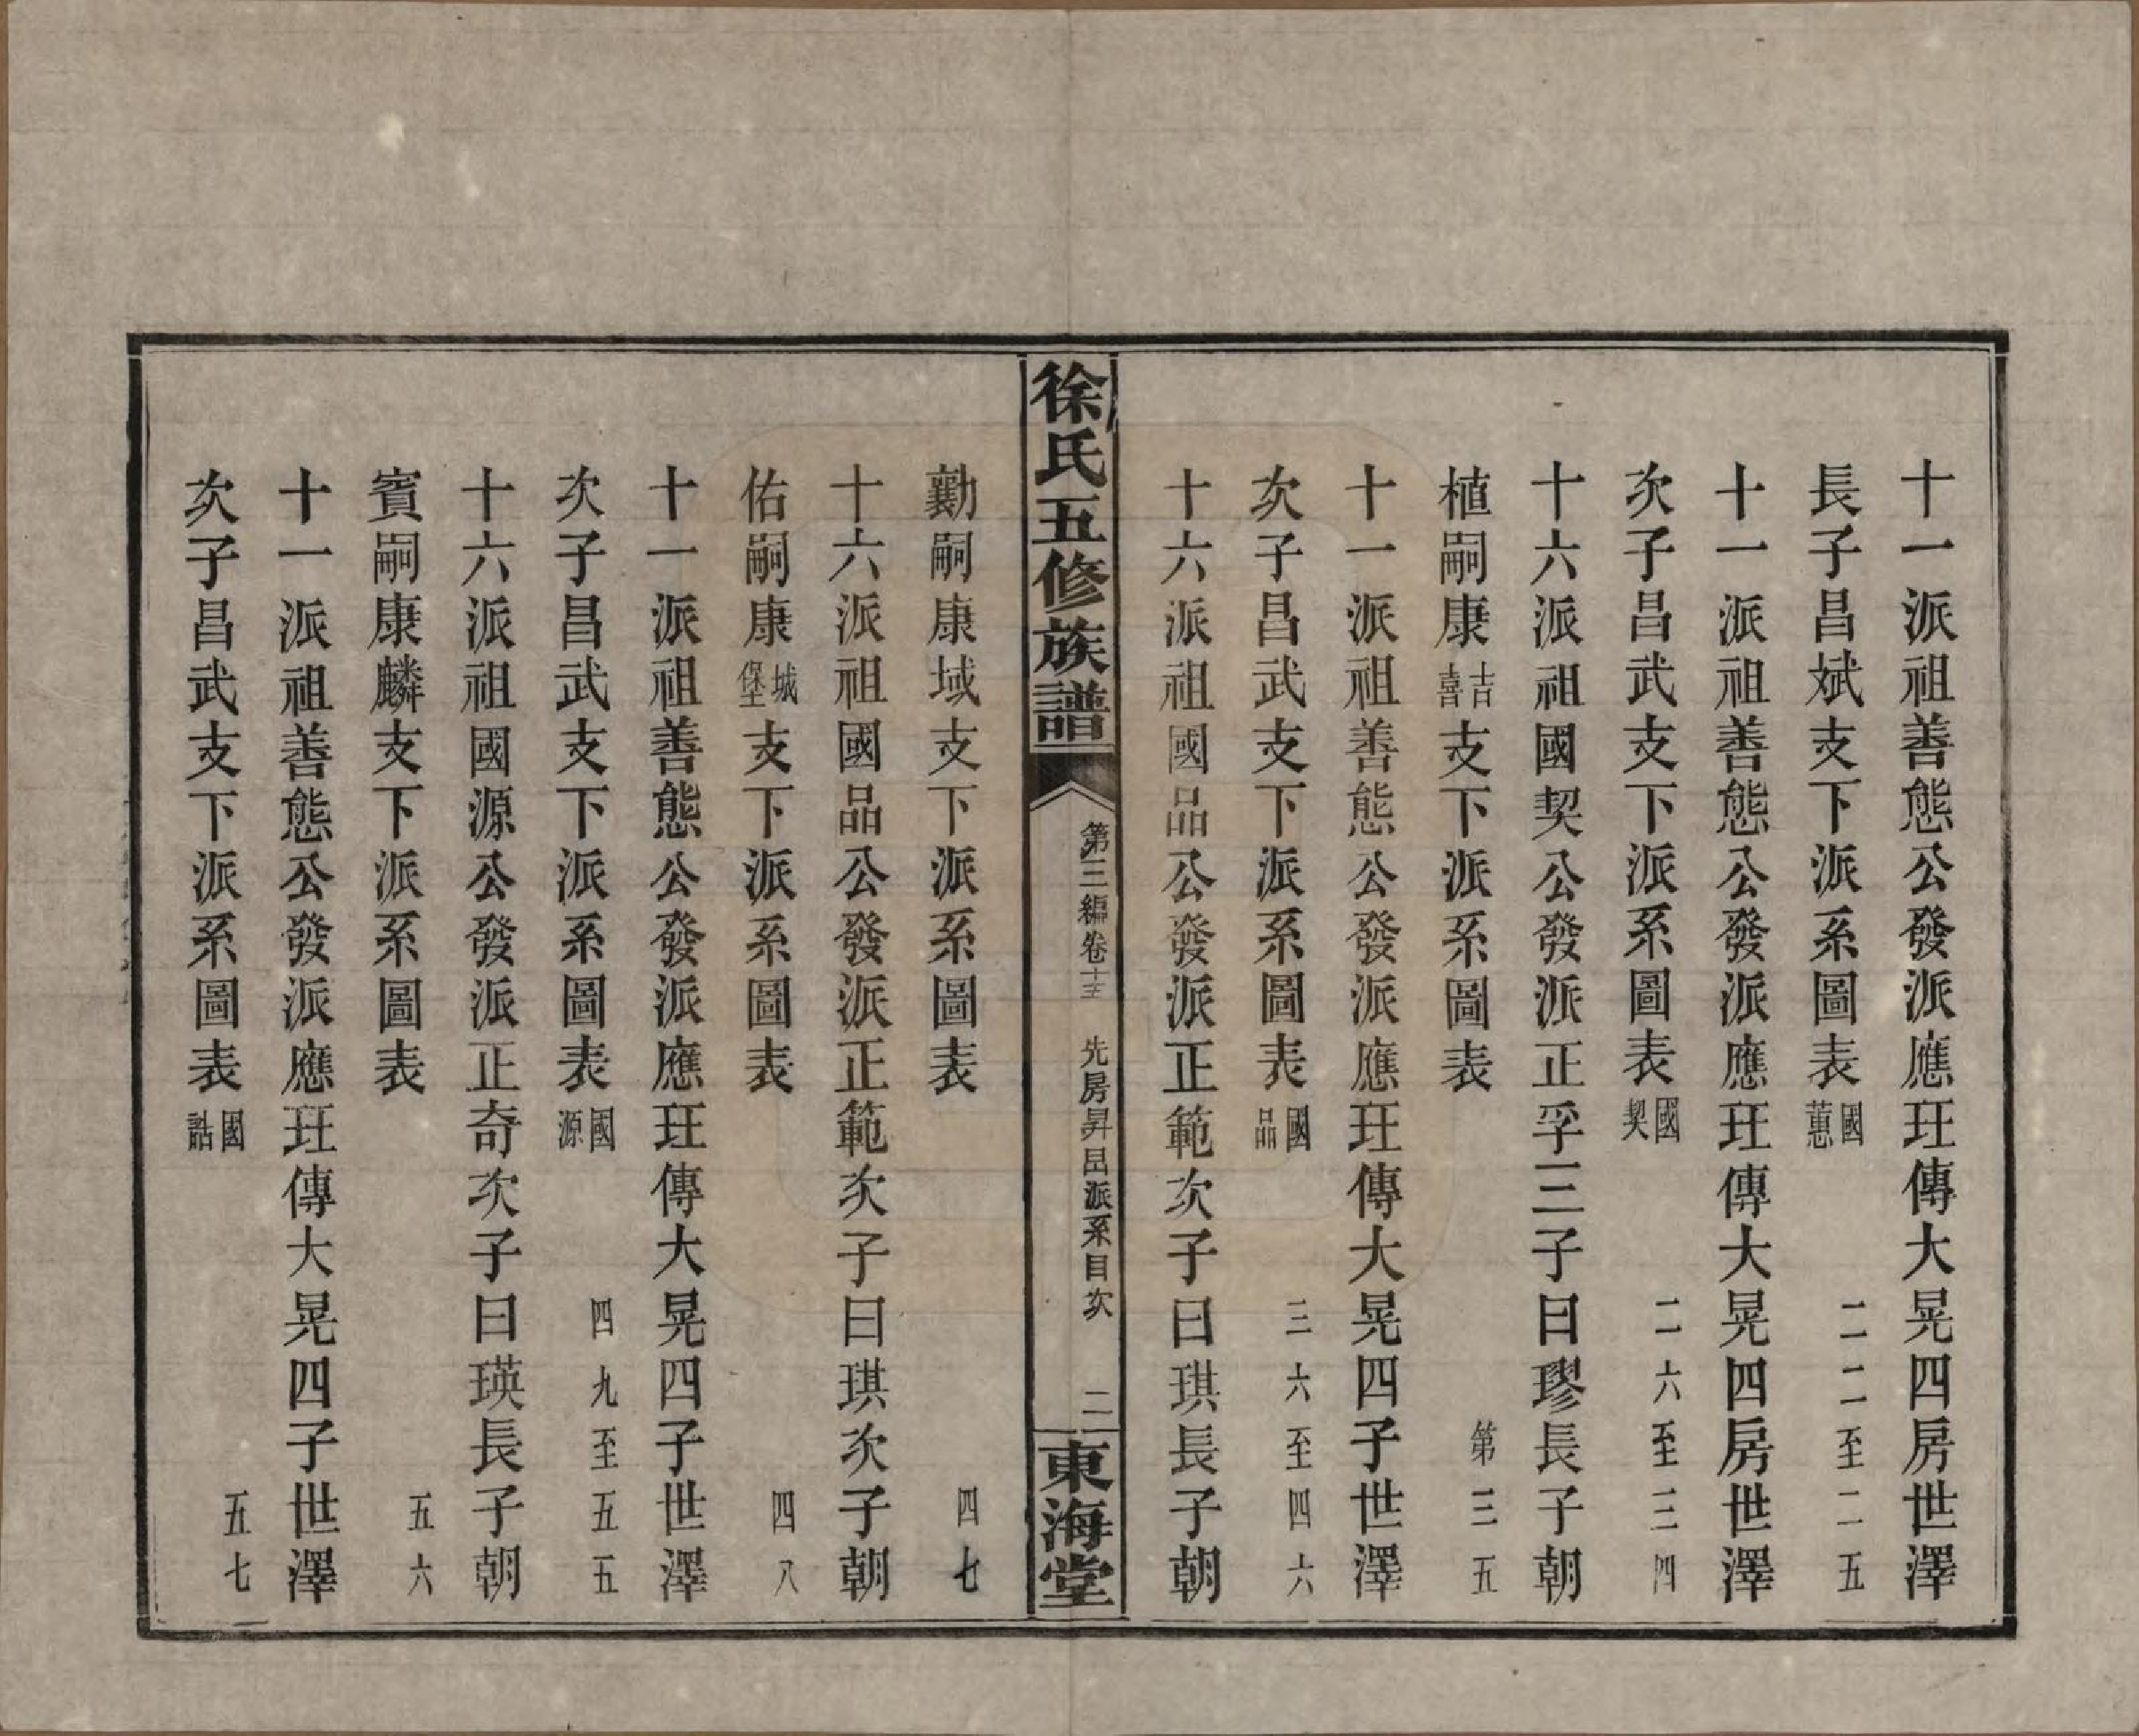 十一派祖善態公發派應玨傳大晃四房世澤
長子昌斌支下派系圖表國蕙 二二至二五
十一派祖善態公發派應玨傳大晃四房世澤
次子昌武支下派系圖表國契 二六至三四
十六派祖國契公發派正孚三子曰璆長子朝
植嗣康吉喜支下派系圖表 第三五
十一派祖善態公發派應玨傳大晃四子世澤
次子昌武支下派系圖表國品 三六至四六
十六派祖國品公發派正範次子曰琪長子朝
徐氏五修族譜
第三編卷十三 先房昇昌派系目次 二
東海堂
勷嗣康域支下派系圖表 四七
十六派祖國品公發派正範次子曰琪次子朝
佑嗣康城堡支下派系圖表 四八
十一派祖善態公發派應玨傳大晃四子世澤
次子昌武支下派系圖表國源 四九至五五
十六派祖國源公發派正奇次子曰瑛長子朝
賓嗣康麟支下派系圖表 五六
十一派祖善態公發派應玨傳大晃四子世澤
次子昌武支下派系圖表國誥 五七